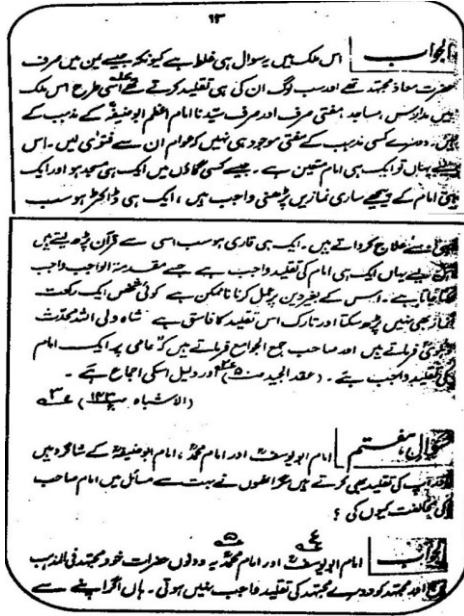 ۱۳
الجواب اس ملک میں یہ سوال ہی غلط ہے کیونکہ جیسے یمن میں صرف
حضرت معاذ مجتہد تھے اور سب لوگ ان کی ہی تقلید کرتے تھے اسی طرح اس ملک
میں مدارس، مساجد، مفتی صرف اور صرف سیدنا امام اعظم ابوحنیفہؒ کے مذہب کے
ہیں۔ دوسرے کسی مذہب کے مفتی موجود ہی نہیں کہ عوام ان سے فتویٰ لیں۔ اس
لئے یہاں تو ایک ہی امام متعین ہے۔ جیسے کسی گاؤں میں ایک ہی مسجد ہو اور ایک
ہی امام کے پیچھے ساری نمازیں پڑھنی واجب ہیں، ایک ہی ڈاکٹر ہو سب
اسی سے علاج کرواتے ہیں۔ ایک ہی قاری ہو سب اسی سے قرآن پڑھ لیتے ہیں
یہاں ایک ہی امام کی تقلید واجب ہے جسے مقدمۃ الواجب واجب
کہا جاتا ہے۔ اس کے بغیر دین پر عمل کرنا ناممکن ہے کوئی شخص ایک رکعت
نماز بھی نہیں پڑھ سکتا اور تارک اس تقلید کا فاسق ہے شاہ ولی اللہ محدث
دہلویؒ فرماتے ہیں اور صاحب جمع الجوامع فرماتے ہیں کہ عامی پر ایک امام
کی تقلید واجب ہے۔ (عقد الجید ص۵۰) اور دلیل اسکی اجماع ہے۔
(الاشباہ ص۱۴۳)
سوال ہفتم امام ابویوسفؒ اور امام محمدؒ، امام ابوحنیفہؒ کے شاگرد ہیں
کی تقلید بھی کرتے ہیں مگر انھوں نے بہت سے مسائل میں امام صاحب
کی مخالفت کیوں کی؟
الجواب امام ابویوسفؒ اور امام محمدؒ یہ دونوں حضرات خود مجتہد فی المذہب
اور مجتہد کو دوسرے مجتہد کی تقلید واجب نہیں ہوتی۔ ہاں اگر اپنے سے